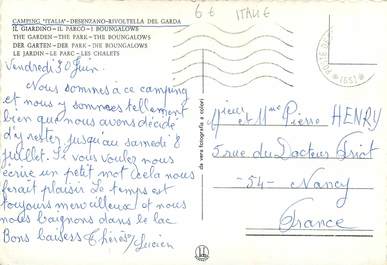 6 € ITALIE
CAMPING "ITALIA" - DESENZANO-RIVOLTELLA DEL GARDA
IL GIARDINO - IL PARCO - I BOUNGALOWS
THE GARDEN - THE PARK - THE BOUNGALOWS
DER GARTEN - DER PARK - DIE BOUNGALOWS
LE JARDIN - LE PARC - LES CHALETS
Vendredi 30 Juin.
Nous sommes à ce camping
et nous y sommes tellement
bien que nous avons décidé
d'y rester jusqu'au samedi 8
juillet. Si vous voulez nous
écrire un petit mot cela nous
ferait plaisir. Le temps est
toujours merveilleux et nous
nous baignons dans le lac
Bons baisers Thérèse Lucien
da vera fotografia a colori
Mr et Mme Pierre HENRY
5 rue du Docteur Friot
-54- Nancy
France